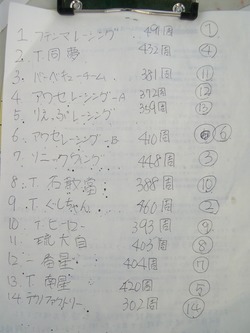 1 ファンマレーシング 491周 ①
2. T.同夢 432周 ④
3. バーベキューチーム 381周 ⑪
4 アウセレーシング-A 372周 ⑫
5. りんぶレーシング 359周 ⑬
6 アウセレーシング-B 410周 ⑥
7 ソニックウィング 448周 ③
8. T. 388周 ⑩
9 T.ぐしちゃん 460周 ②
10 T.ヒーロー 393周 ⑨
11 琉大自 403周 ⑧
12 一番星 404周 ⑦
13 T.南星 420周 ⑤
14 テクノファクトリー 302周 ⑭